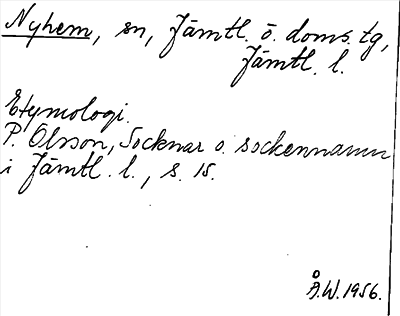 Nyhem, sn, Jämtl. ö. doms. tg,
Jämtl. l.
Etymologi.
P. Olsson, Socknar o. sockennamn
i Jämtl. l., s. 15.
Å.W. 1956.